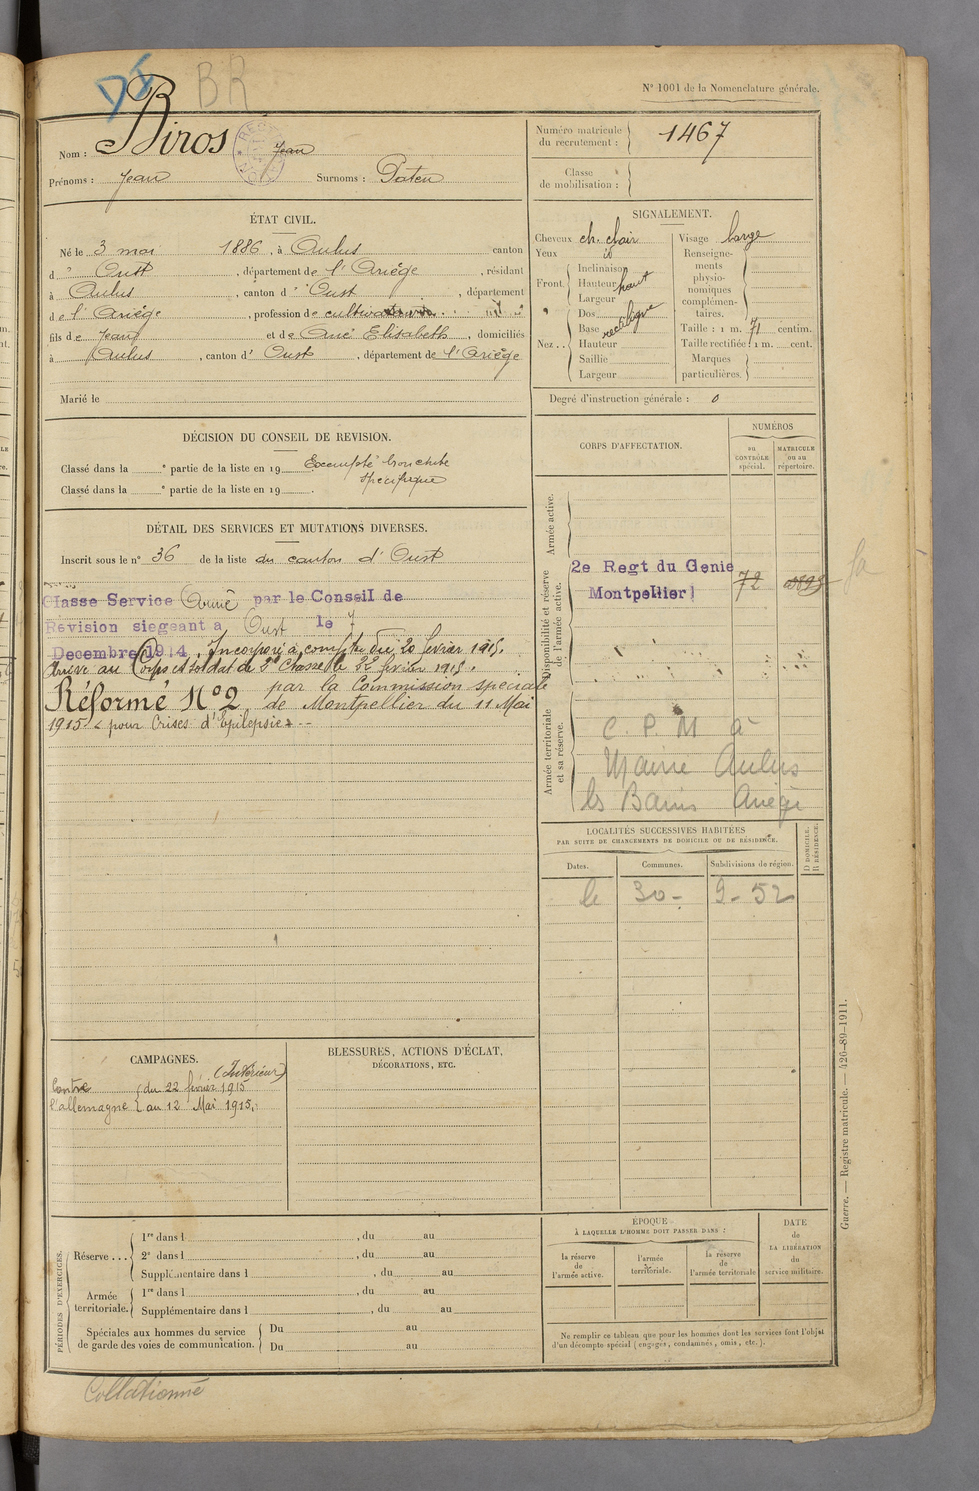 BR
N° 1001 de la Nomenclature générale.
Nom : Biros Jean
Prénoms : Jean Surnoms : Pateu
Numéro matricule du recrutement : 1467
Classe de mobilisation :
ÉTAT CIVIL.
Né le 3 mai 1886, à Aulus canton
d " Oust, département de l'Ariège, résidant
à Aulus, canton d " Oust, département
de l'Ariège, profession de cultivateur
fils de Jean et de Elisabeth, domiciliés
à Aulus, canton d' Oust, département de l'Ariège
Marié le
SIGNALEMENT.
Cheveux ch. clair
Yeux id
Front. Inclinaison
Hauteur haut
Largeur
Nez .. Dos
Base rectiligne
Hauteur
Saillie
Largeur
Visage large
Renseignements physionomiques complémentaires.
Taille : 1 m. 71 centim.
Taille rectifiée : 1 m. cent.
Marques particulières.
Degré d'instruction générale : 0
DÉCISION DU CONSEIL DE REVISION.
Classé dans la e partie de la liste en 19 Exempté bronchite
Classé dans la e partie de la liste en 19 . spécifique
CORPS D'AFFECTATION.
NUMÉROS
au CONTRÔLE spécial.
MATRICULE ou au répertoire.
Armée active.
Disponibilité et réserve de l'armée active.
2e Regt du Genie 72
Montpellier
Armée territoriale et sa réserve.
C. P. M à
Mairie Aulus
les Bains Ariège
DÉTAIL DES SERVICES ET MUTATIONS DIVERSES.
Inscrit sous le n° 36 de la liste du canton d' Oust
Classe Service Armé par le Conseil de
Revision siegeant a Oust le 7
Decembre 1914. Incorporé à compter du 20 février 1915.
Arrivé au Corps et soldat de 2e Classe le 22 février 1915.
Réformé N° 2 par la Commission spéciale
de Montpellier du 11 Mai
1915 " pour Crises d'épilepsie " --
LOCALITÉS SUCCESSIVES HABITÉES
PAR SUITE DE CHANGEMENTS DE DOMICILE OU DE RÉSIDENCE.
Dates. Communes. Subdivisions de région.
D DOMICILE. R RÉSIDENCE.
le 30 - 9 - 52
CAMPAGNES.
(Intérieur)
Contre du 22 février 1915
l'allemagne au 12 Mai 1915.
BLESSURES, ACTIONS D'ÉCLAT,
DÉCORATIONS, ETC.
PÉRIODES D'EXERCICES.
Réserve ...
1re dans l , du au
2e dans l , du au
Supplémentaire dans l , du au
Armée territoriale.
1re dans l , du au
Supplémentaire dans l , du au
Spéciales aux hommes du service de garde des voies de communication.
Du au
Du au
ÉPOQUE
À LAQUELLE L'HOMME DOIT PASSER DANS :
la réserve de l'armée active.
l'armée territoriale.
la réserve de l'armée territoriale
DATE de LA LIBÉRATION du service militaire.
Ne remplir ce tableau que pour les hommes dont les services font l'objet
d'un décompte spécial (engagés, condamnés, omis, etc.).
Guerre. — Registre matricule. — 426-89-1911.
Collationné